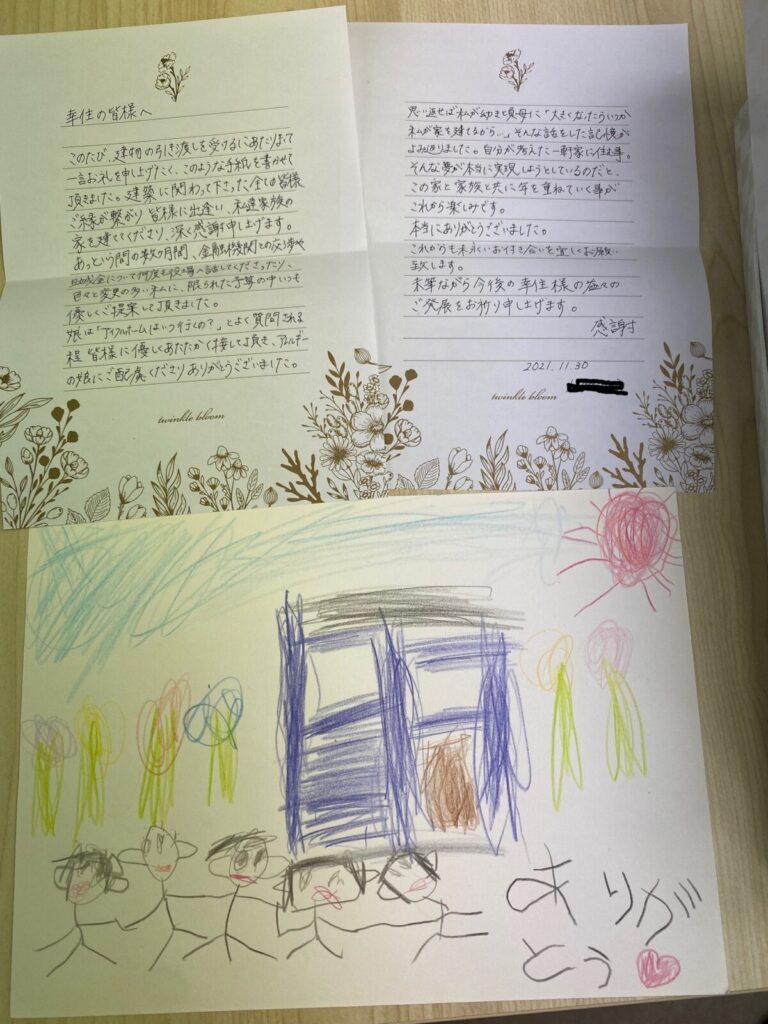 幸住の皆様へ
このたび、建物の引き渡しを受けるにあたりまして
一言お礼を申し上げたく、このような手紙を書かせて
頂きました。建築に関わって下さった全ての皆様
ご縁が繋がり 皆様に出逢い、私達家族の
家を建ててくださり、深く感謝申し上げます。
あっという間の数ヶ月間、金融機関との交渉や
助成金について何度も役場へ話してくださったり、
色々と変更の多い私に、限られた予算の中いつも
優しくご提案して頂きました。
娘は「アイフルホームはいつ行くの?」とよく質問される
程 皆様に優しくあたたかく接して頂き、アレルギー
の娘にご配慮くださりありがとうございました。
twinkle bloom
思い返せば私が幼き頃 母に「大きくなったらいつか
私が家を建てるから…」そんな話をした記憶が
よみ返りました。自分が考えた一軒家に住む事。
そんな夢が本当に実現しようとしているのだと、
この家と家族と共に年を重ねていく事が
これから楽しみです。
本当にありがとうございました。
これからも末永いお付き合いを宜しくお願い
致します。
末筆ながら今後の幸住様の益々の
ご発展をお祈り申し上げます。
感謝
2021.11.30
twinkle bloom
ありが
とう